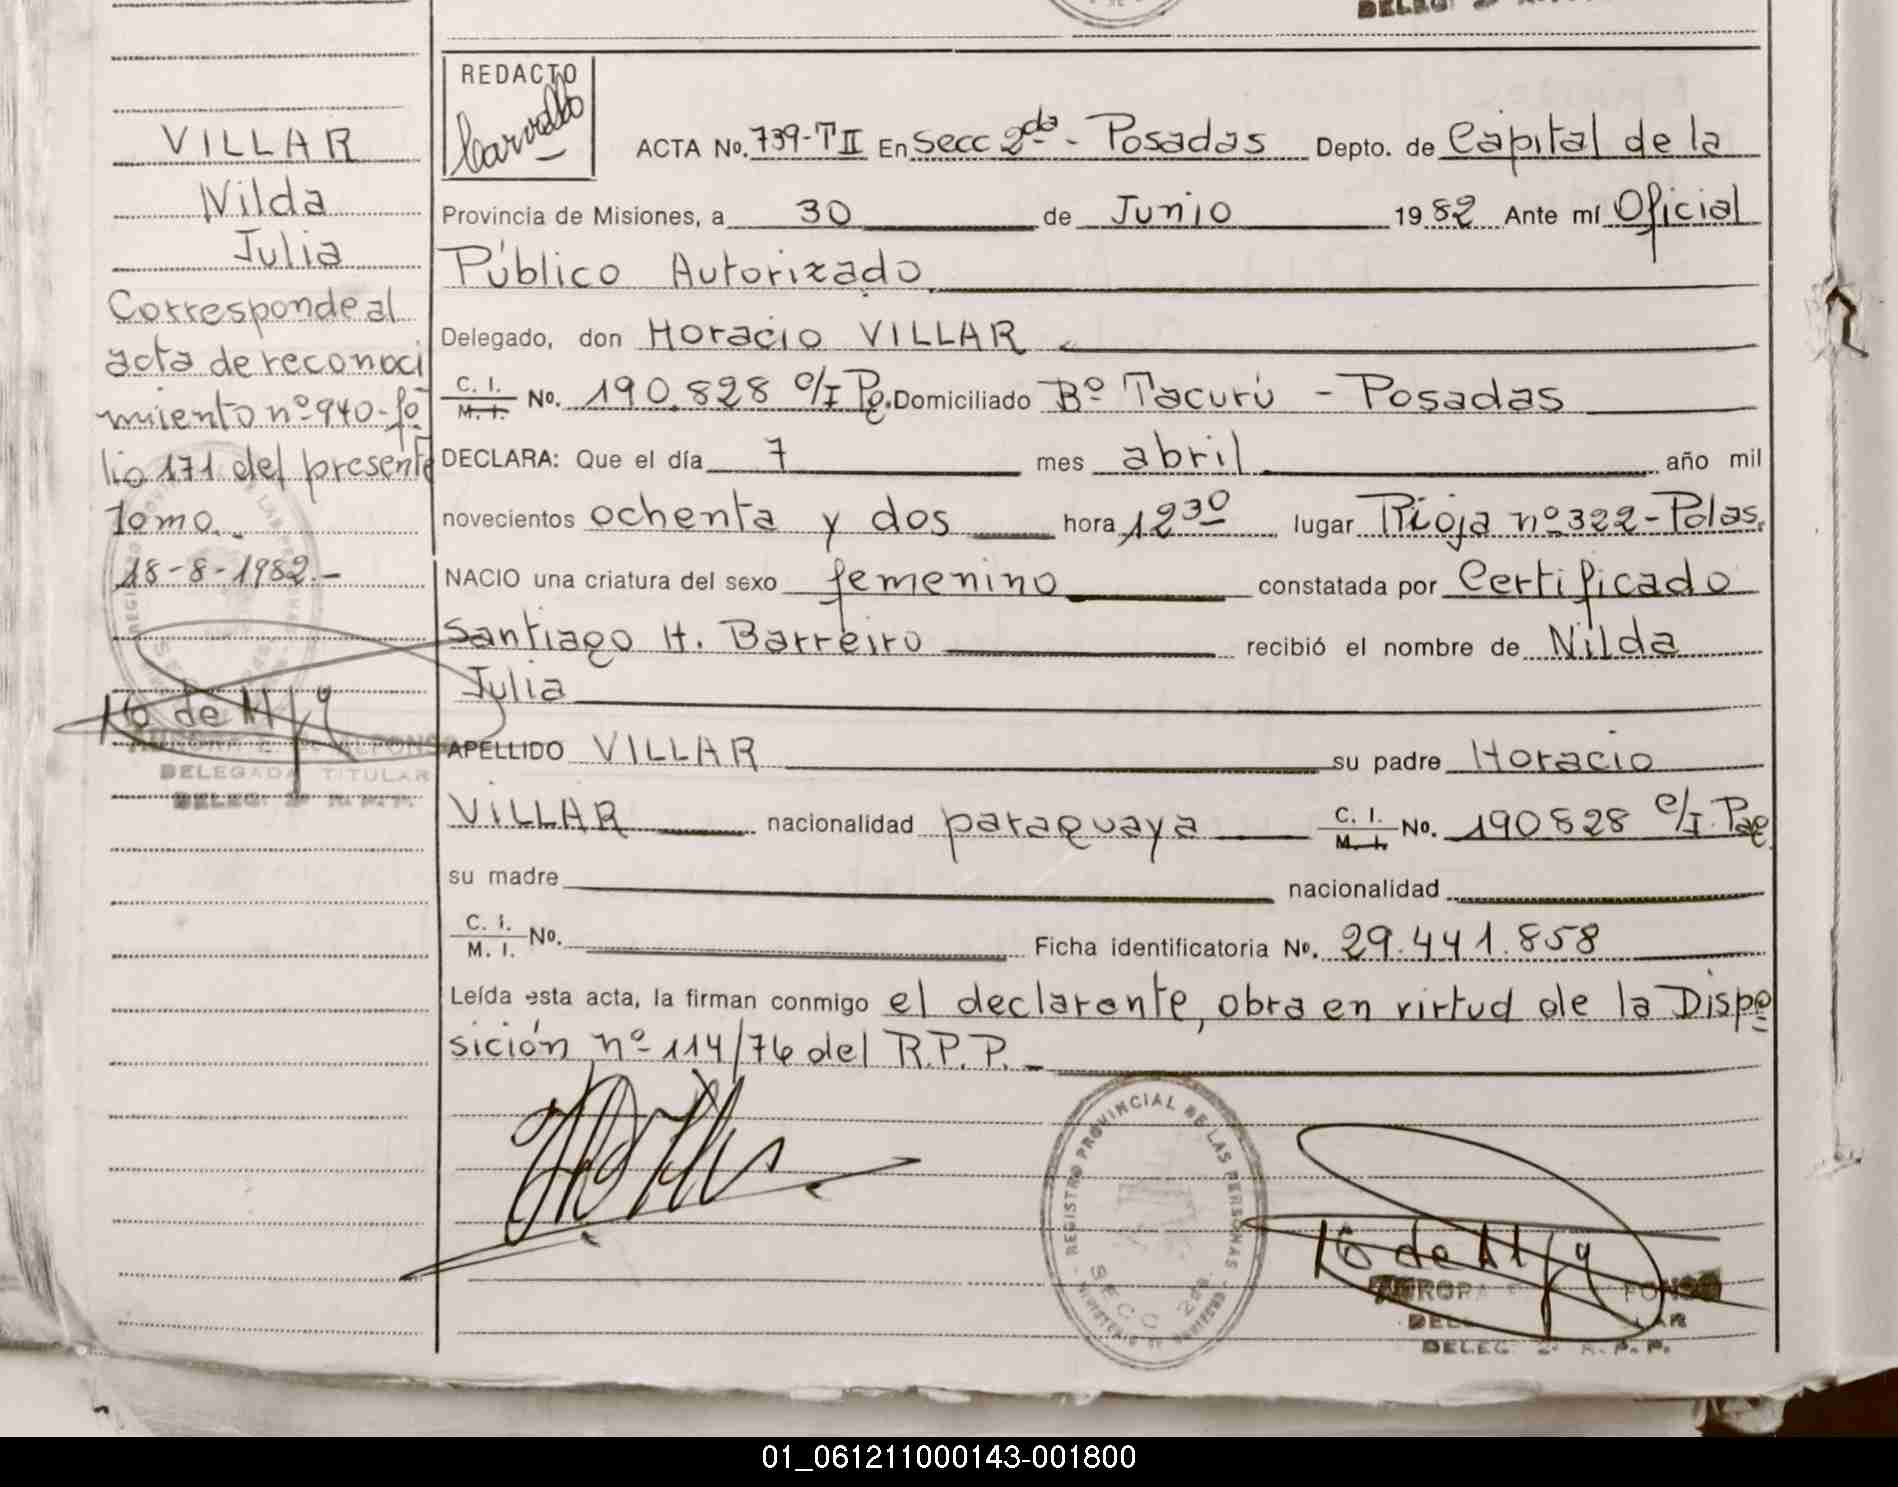 DELEG. 2ª
REDACTO
Carvallo
ACTA No. 739-T II En Secc 2da - Posadas Depto. de Capital de la
Provincia de Misiones, a 30 de Junio 1982 Ante mí Oficial
Público Autorizado
Delegado, don Horacio VILLAR
C. I. M. I. No. 190.828 C/I Pg. Domiciliado Bº Tacurú - Posadas
DECLARA: Que el día 7 mes abril año mil
novecientos ochenta y dos hora 12 30 lugar Rioja nº 322-Pdas.
NACIO una criatura del sexo femenino constatada por Certificado
Santiago H. Barreiro recibió el nombre de Nilda
Julia
APELLIDO VILLAR su padre Horacio
VILLAR nacionalidad paraguaya C. I. M. I. No. 190828 C/I. Pag
su madre nacionalidad
C. I. M. I. No. Ficha identificatoria No. 29.441.858
Leída esta acta, la firman conmigo el declarante, obra en virtud de la Dispo
sición nº 114/76 del R.P.P.
REGISTRO PROVINCIAL DE LAS PERSONAS
SECC 2da.
MINISTERIO DE GOBIERNO
AURORA FONSO
DELEG. 2ª R.P.P.
VILLAR
Nilda
Julia
Corresponde al
acta de reconoci
miento nº 940-fo
lio 171 del presente
Tomo.
18-8-1982.-
DELEGADA TITULAR
DELEG. 2ª R.P.P.
01_061211000143-001800